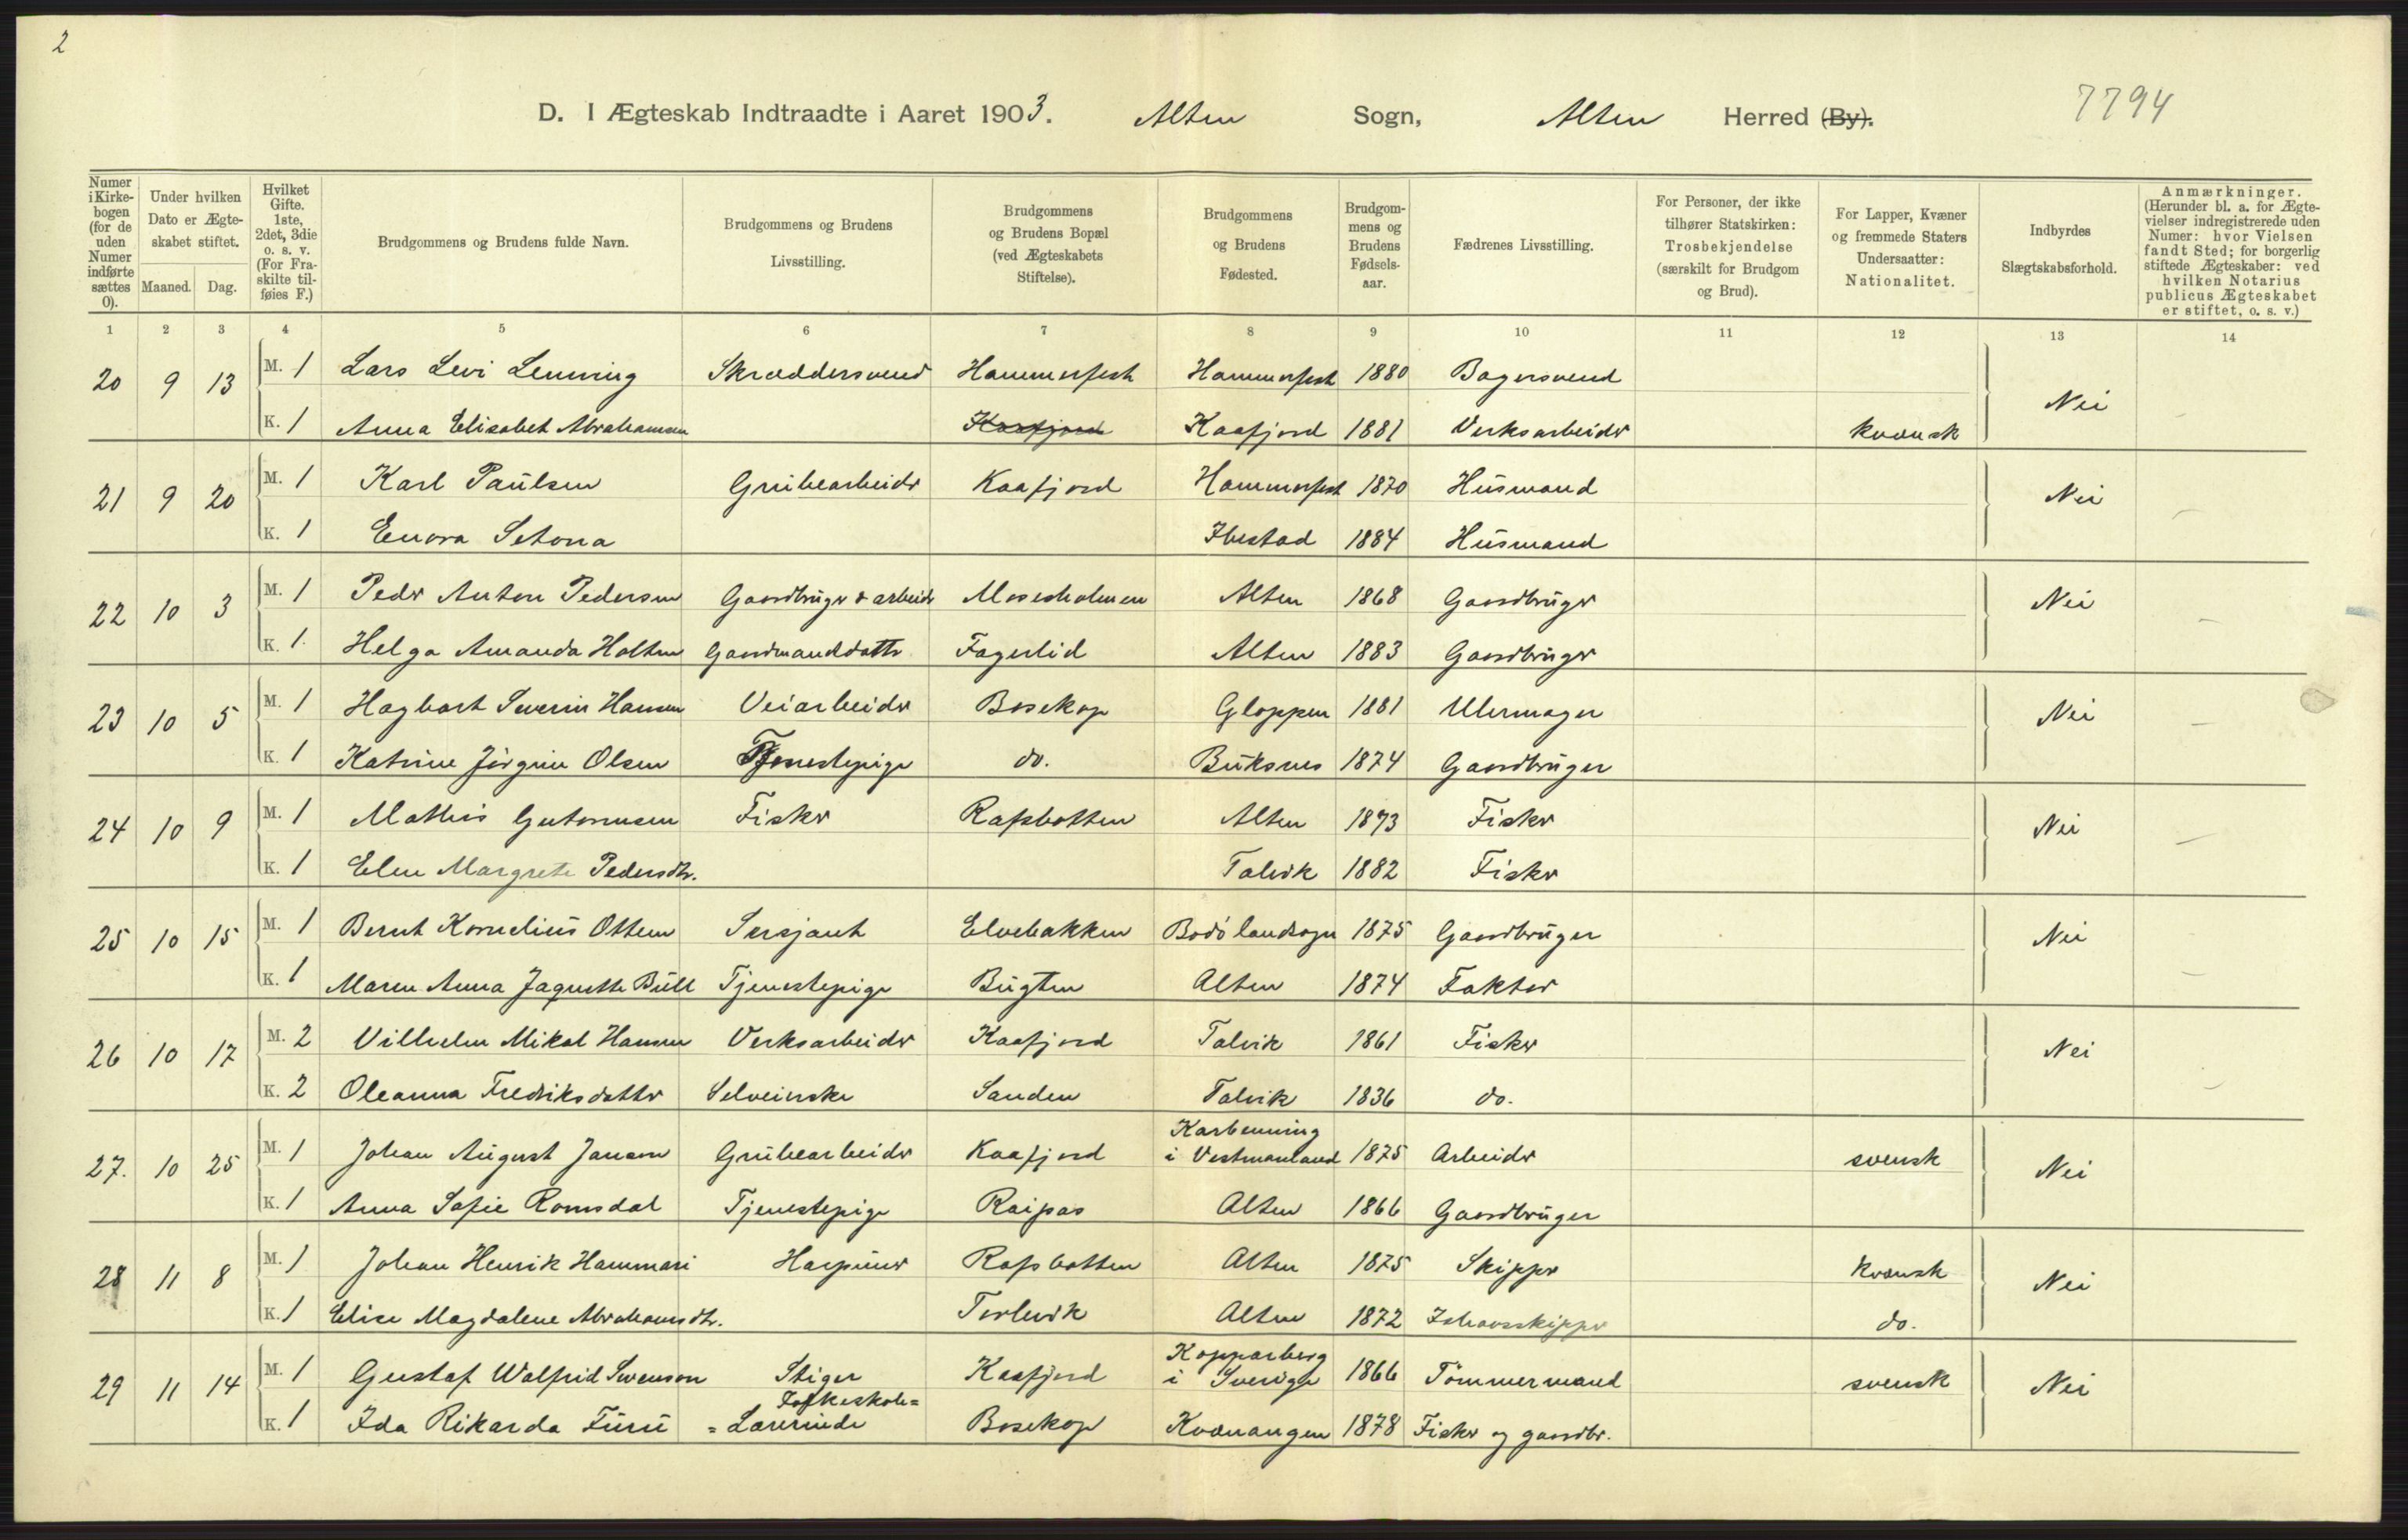 2
D. I Ægteskab Indtraadte i Aaret 1903. Alten Sogn, Alten Herred (By). 7794
Numer i Kirkebogen (for de uden Numer indførte sættes 0).
Under hvilken Dato er Ægteskabet stiftet.
Maaned. Dag.
Hvilket Gifte. 1ste, 2det, 3die o. s. v. (For Fraskilte tilføies F.)
Brudgommens og Brudens fulde Navn.
Brudgommens og Brudens Livsstilling.
Brudgommens og Brudens Bopæl (ved Ægteskabets Stiftelse).
Brudgommens og Brudens Fødested.
Brudgommens og Brudens Fødselsaar.
Fædrenes Livsstilling.
For Personer, der ikke tilhører Statskirken: Trosbekjendelse (særskilt for Brudgom og Brud).
For Lapper, Kvæner og fremmede Staters Undersaatter: Nationalitet.
Indbyrdes Slægtskabsforhold.
Anmærkninger. (Herunder bl. a. for Ægtevielser indregistrerede uden Numer: hvor Vielsen fandt Sted; for borgerlig stiftede Ægteskaber: ved hvilken Notarius publicus Ægteskabet er stiftet, o. s. v.)
1 2 3 4 5 6 7 8 9 10 11 12 13 14
20 9 13 M. 1 Lars Levi Lemming Skræddersvend Hammerfest Hammerfest 1880 Bagersvend Nei
K. 1 Anna Elisabet Abrahamsen Kaafjord Kaafjord 1881 Verksarbeider kvænsk
21 9 20 M. 1 Karl Paulsen Grubearbeider Kaafjord Hammerfest 1870 Husmand Nei
K. 1 Enora Setona Ibestad 1884 Husmand
22 10 3 M. 1 Peder Anton Pedersen Gaardbruger & arbeider Mosesholmen Alten 1868 Gaardbruger Nei
K. 1 Helga Amanda Holten Gaardmanddatter Fagerlid Alten 1883 Gaardbruger
23 10 5 M. 1 Hagbart Severin Hansen Veiarbeider Bosekop Gloppen 1881 Uhrmager Nei
K. 1 Katrine Jørgine Olsen Tjenestepige do. Buksnes 1874 Gaardbruger
24 10 9 M. 1 Mathis Guttormsen Fisker Rafsbotten Alten 1873 Fisker Nei
K. 1 Elen Margrete Pedersdtr. Talvik 1882 Fisker
25 10 15 M. 1 Bernt Kornelius Ottem Sersjant Elvebakken Bodø landsogn 1875 Gaardbruger Nei
K. 1 Maren Anna Jaquette Bull Tjenestepige Bugten Alten 1874 Faktor
26 10 17 M. 2 Vilhelm Mikal Hansen Verksarbeider Kaafjord Talvik 1861 Fisker Nei
K. 2 Oleanna Fredriksdatter Selveierske Sanden Talvik 1836 do.
27. 10 25 M. 1 Johan August Janson Grubearbeider Kaafjord Karbenning i Vestmanland 1875 Arbeider svensk Nei
K. 1 Anna Sofie Romsdal Tjenestepige Raipas Alten 1866 Gaardbruger
28 11 8 M. 1 Johan Henrik Hammari Harpuner Rafsbotten Alten 1875 Skipper kvænsk Nei
K. 1 Elise Magdalene Abrahamsdtr. Alten 1872 Ishavsskipper do.
29 11 14 M. 1 Gustaf Walfrid Svenson Stiger Kaafjord Kopparberg i Sverige 1866 Tømmermand svensk Nei
K. 1 Ida Rikarda Furu Folkeskole= =Lærerinde Bosekop Kvænangen 1878 Fisker og gaardbr.